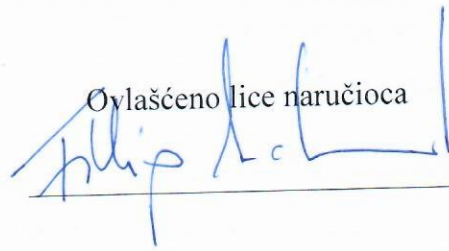 Ovlašćeno lice naručioca
Filip